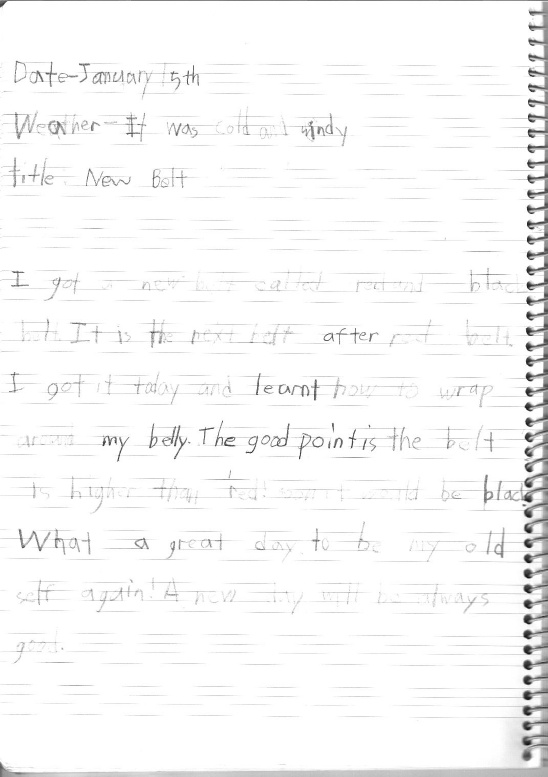 Date-January 15th
Weather-It was cold and windy
title New Bolt
I got a new called red and black
belt. It is the next belt after red belt.
I got it today and learnt how to wrap
around my belly. The good point is the belt
is higher than red! soon it would be black
What a great day to be my old
self again! A new day will be always
good.